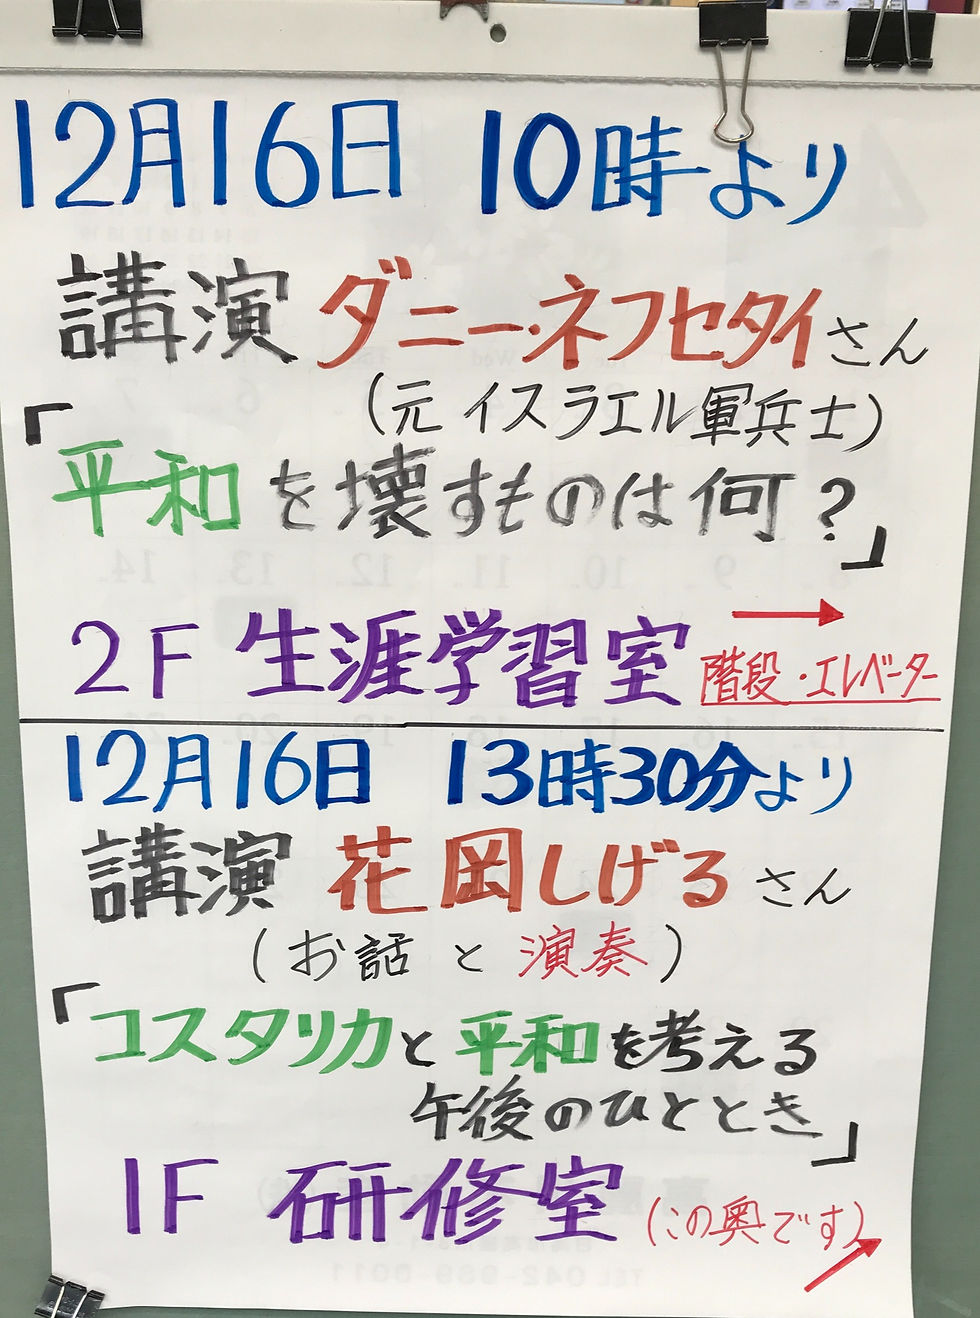 12月16日 10時より
講演 ダニー・ネフセタイさん
(元イスラエル軍兵士)
「平和を壊すものは何?」
2F 生涯学習室 → 階段・エレベーター
12月16日 13時30分より
講演 花岡しげるさん
(お話と演奏)
「コスタリカと平和を考える
午後のひととき」
1F 研修室 (この奥です)